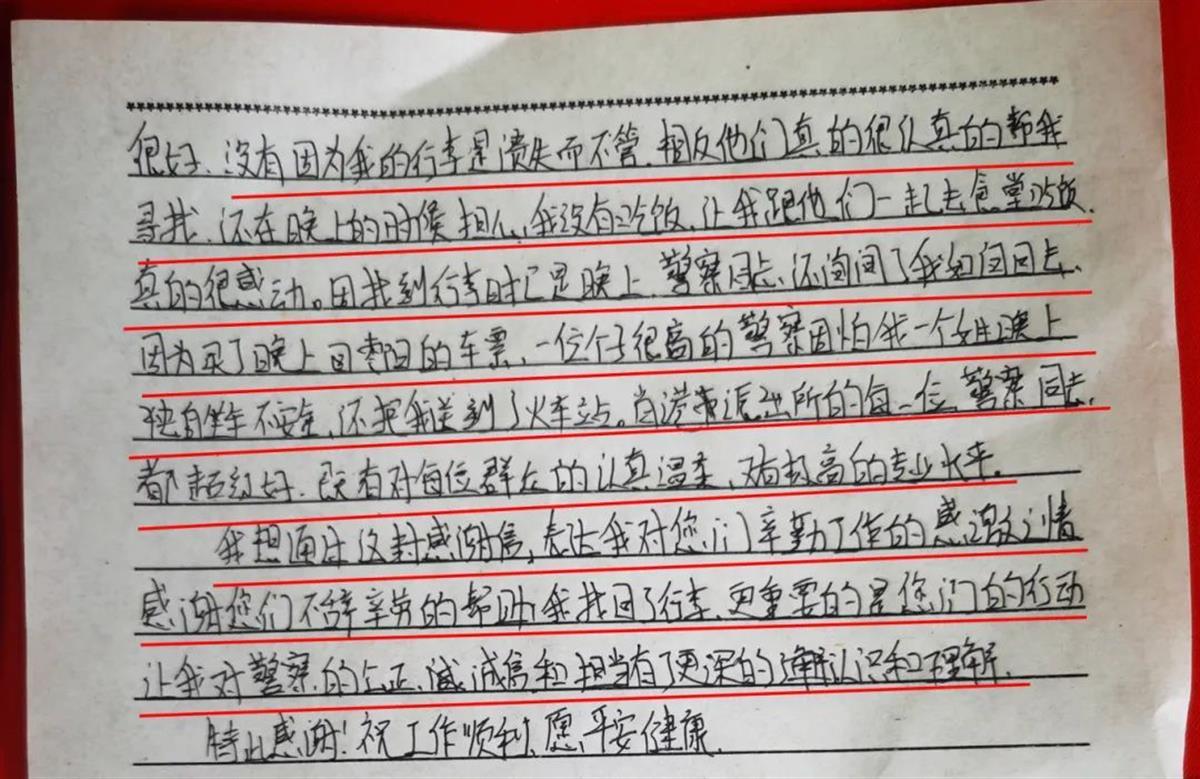 很好、没有因为我的行李是遗失而不管、相反他们真的很认真的帮我
寻找、还在晚上的时候担心我没有吃饭、让我跟他们一起去食堂吃饭、
真的很感动。因找到行李时已是晚上、警察同志、还询问了我如何回去、
因为买了晚上回枣阳的车票、一位个子很高的警察因怕我一个女生晚上
独自坐车不安全、还把我送到了火车站。肖港派出所的每一位、警察同志、
都超级好、既有对每位群众的认真温柔、又有极高的专业水平、
我想通过这封感谢信、表达我对您们辛勤工作的感激之情
感谢您们不辞辛劳的帮助我找回了行李、更重要的是您们的行动
让我对警察的公正、诚信和担当有了更深的认识和理解、
特此感谢!祝工作顺利、愿平安健康、